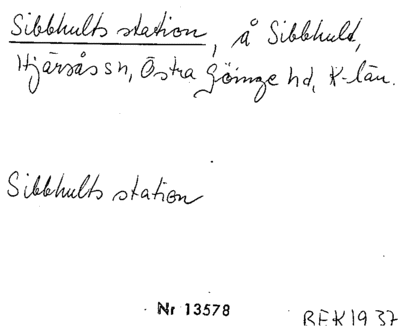 Sibbhults station, å Sibbhult,
Hjärsås sn, Östra Göinge hd, K-län.
Sibbhults station
Nr 13578
REK 1937